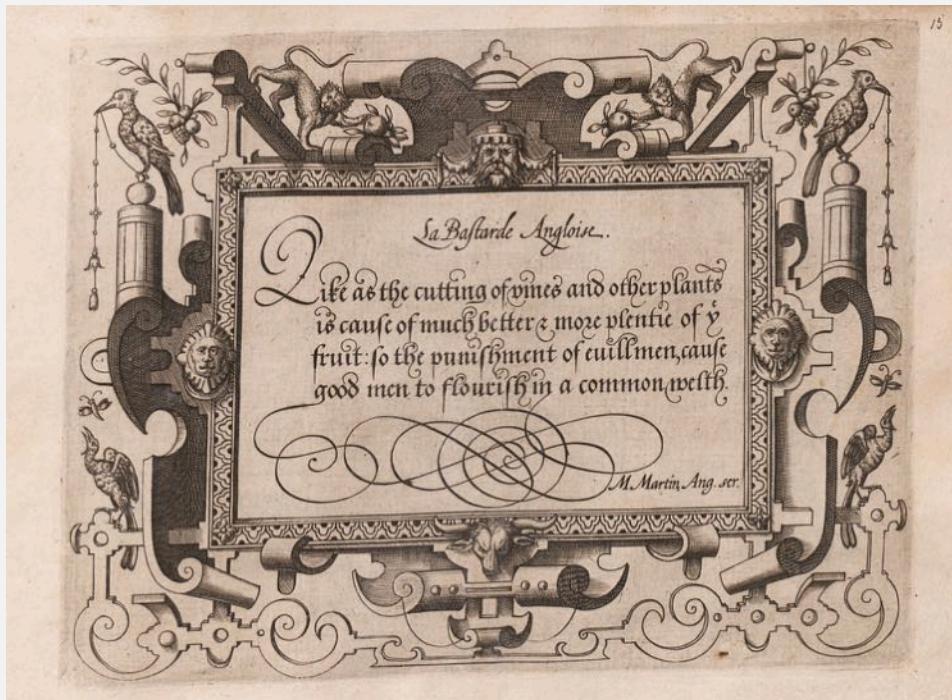 15
La Bastarde Angloise.
Like as the cutting of vines and other plants
is cause of much better & more plentie of yͤ
fruit: so the punishment of euill men, cause
good men to flourish in a common welth.
M. Martin Ang. scr.